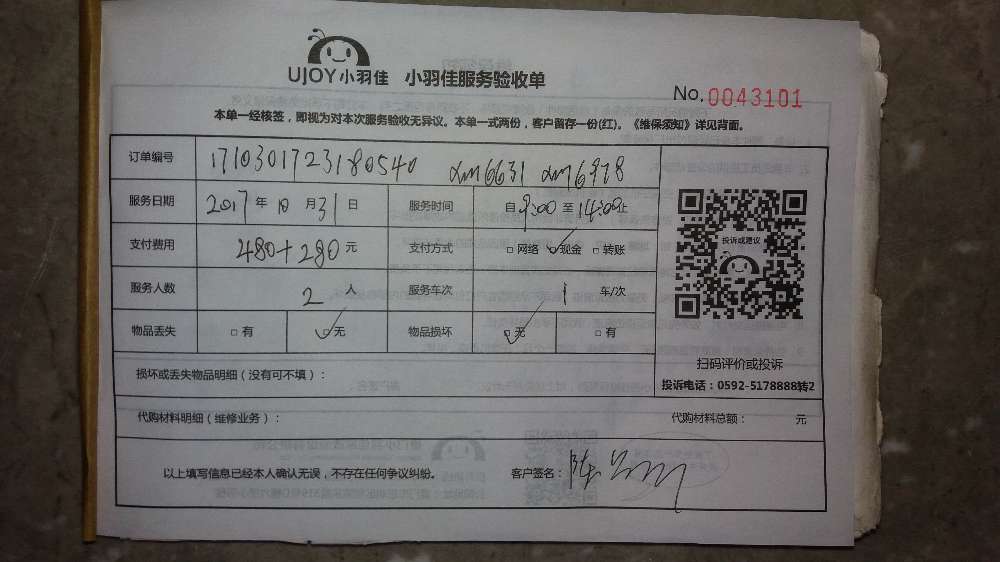 UJOY小羽佳 小羽佳服务验收单
No.0043101
本单一经核签，即视为对本次服务验收无异议。本单一式两份，客户留存一份(红)。《维保须知》详见背面。
订单编号 171030172318 0540 xm6631 xm6978
服务日期 2017年10月31日 服务时间 自9:00至14:00止
支付费用 480+280元 支付方式 □网络 ☑现金 □转账
投诉或建议
服务人数 2人 服务车次 1车/次
物品丢失 □有 ☑无 物品损坏 ☑无 □有
扫码评价或投诉
投诉电话：0592-5178888转2
损坏或丢失物品明细（没有可不填）：
代购材料明细（维修业务）： 代购材料总额： 元
以上填写信息已经本人确认无误，不存在任何争议纠纷。 客户签名：陈